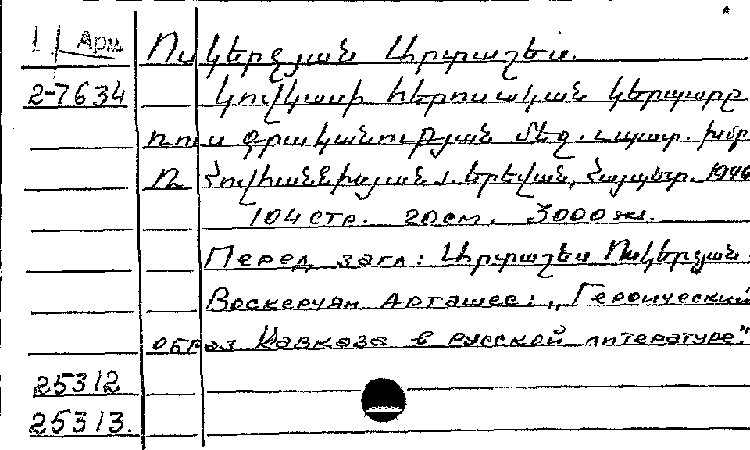 1 Арм Ոսկերչյան Արտաշես.
2-7634 Կովկասի հերոսական կերպարը
ռուս գրականության մեջ. պատ. խմբ
Ռ. Հովհաննիսյան. Երեվան, Հայպետ. 1946
104 стр. 20 см. 3000 экз.
Перед загл: Արտաշես Ոսկերչյան.
Воскерчян Арташес: „Героический
образ Кавказа в русской литературе."
25312
25313.